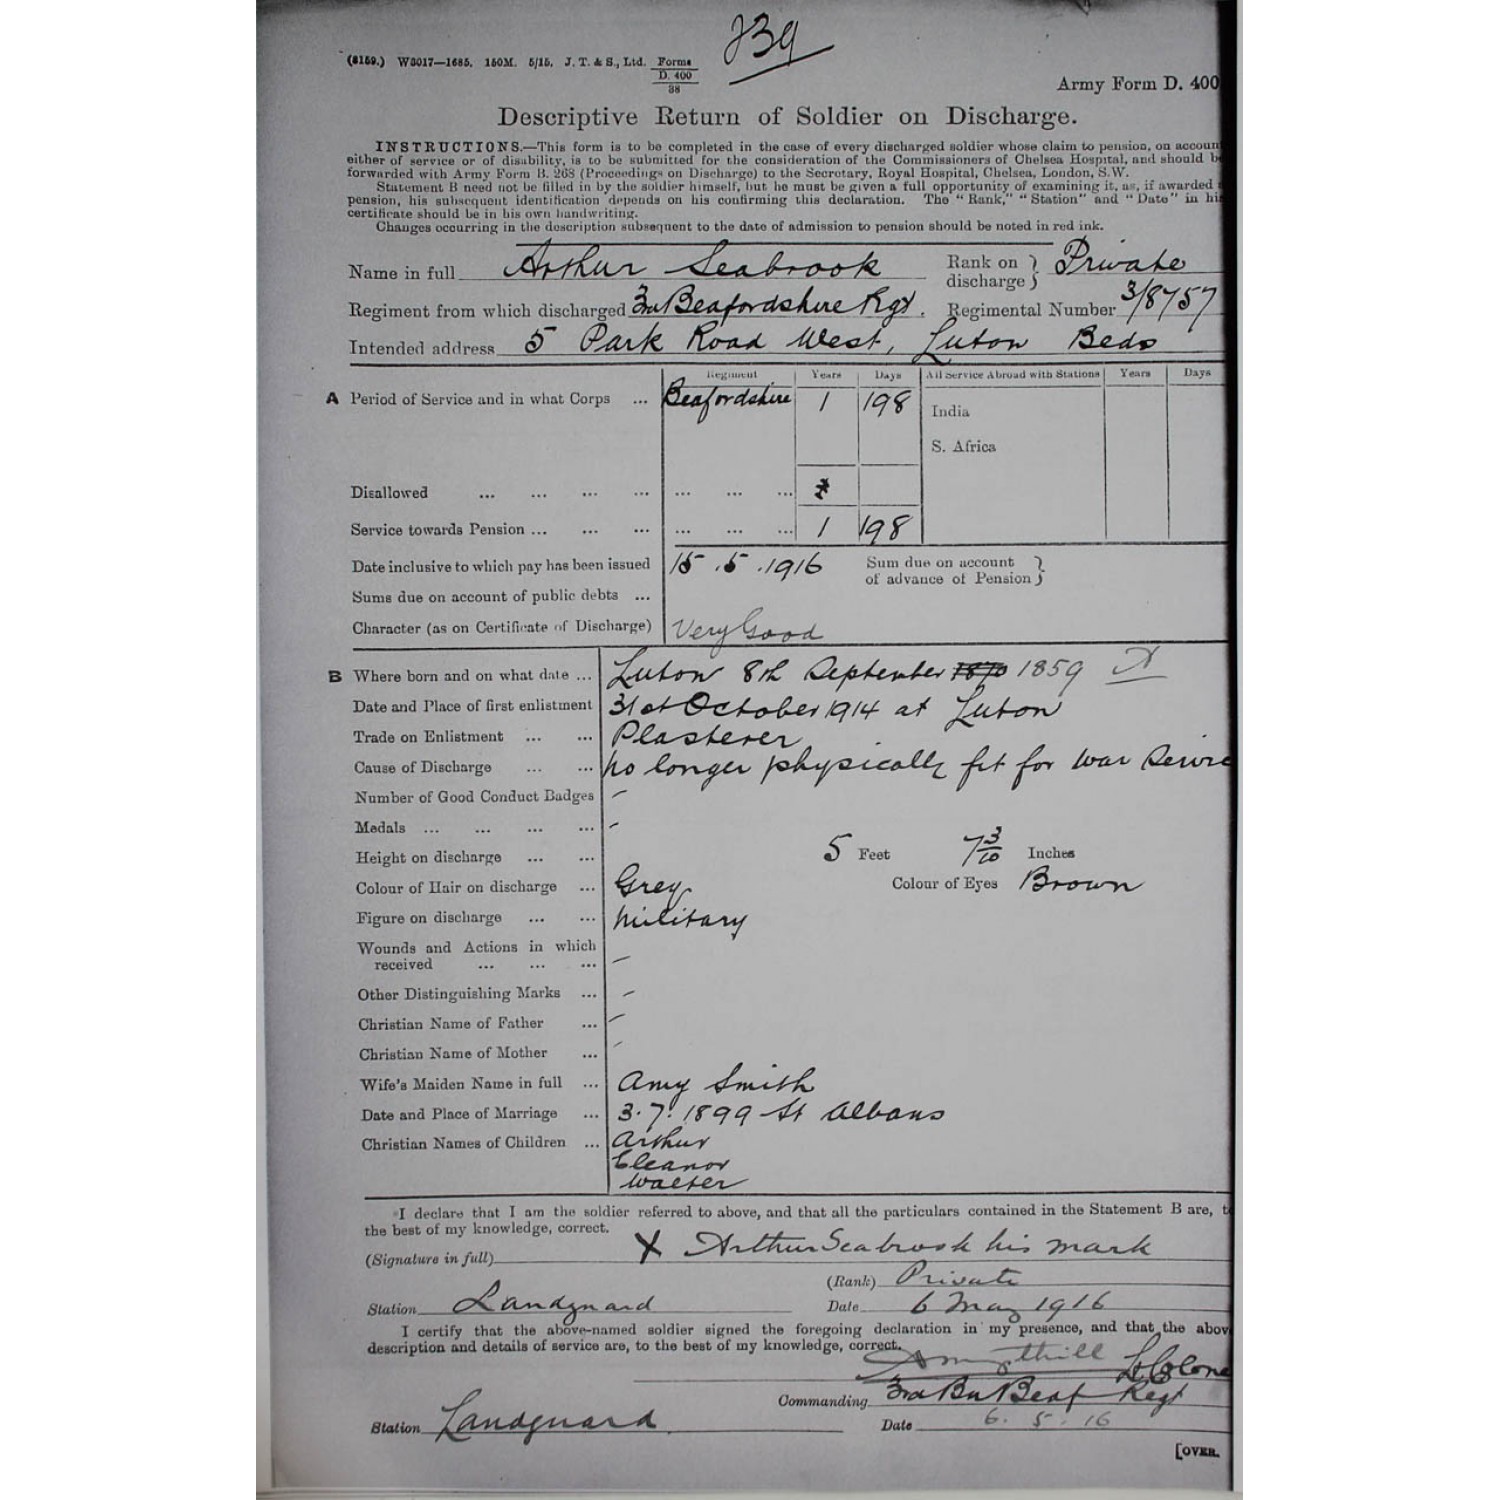 (8159.) W8017—1685. 150M. 5/15. J. T. & S., Ltd. Forms D. 400 38
Army Form D. 400
Descriptive Return of Soldier on Discharge.
INSTRUCTIONS.—This form is to be completed in the case of every discharged soldier whose claim to pension, on accoun
either of service or of disability, is to be submitted for the consideration of the Commissioners of Chelsea Hospital, and should b
forwarded with Army Form B. 268 (Proceedings on Discharge) to the Secretary, Royal Hospital, Chelsea, London, S.W.
Statement B need not be filled in by the soldier himself, but he must be given a full opportunity of examining it, as, if awarded
pension, his subsequent identification depends on his confirming this declaration. The "Rank," "Station" and "Date" in his
certificate should be in his own handwriting.
Changes occurring in the description subsequent to the date of admission to pension should be noted in red ink.
Name in full Arthur Seabrook Rank on discharge } Private
Regiment from which discharged 3rd Beafordshire Rgt. Regimental Number 3/8757
Intended address 5 Park Road West, Luton Beds
Regiment Years Days All Service Abroad with Stations Years Days
A Period of Service and in what Corps ... Beafordshire 1 198 India
S. Africa
Disallowed ... ... ... ... ... ... ...
Service towards Pension ... ... ... ... ... ... 1 198
Date inclusive to which pay has been issued 15.5.1916 Sum due on account of advance of Pension }
Sums due on account of public debts ...
Character (as on Certificate of Discharge) Very Good
B Where born and on what date ... Luton 8th September 1870 1859 X
Date and Place of first enlistment 31st October 1914 at Luton
Trade on Enlistment ... ... Plasterer
Cause of Discharge ... ... no longer physically fit for War Servic
Number of Good Conduct Badges –
Medals ... ... ... ... –
Height on discharge ... ... 5 Feet 7 3/10 Inches
Colour of Hair on discharge ... Grey Colour of Eyes Brown
Figure on discharge ... ... Military
Wounds and Actions in which
received ... ... ... –
Other Distinguishing Marks ... –
Christian Name of Father ... –
Christian Name of Mother ... –
Wife's Maiden Name in full ... Amy Smith
Date and Place of Marriage ... 3.7.1899 St Albans
Christian Names of Children ... Arthur
Eleanor
Walter
*I declare that I am the soldier referred to above, and that all the particulars contained in the Statement B are, t
the best of my knowledge, correct.
(Signature in full) X Arthur Seabrook his mark
(Rank) Private
Station Landguard Date 6 May 1916
I certify that the above-named soldier signed the foregoing declaration in my presence, and that the abov
description and details of service are, to the best of my knowledge, correct.
Ampthill Lt Colone
Commanding 3rd Bn Beaf Regt
Station Landguard Date 6.5.16
[OVER.